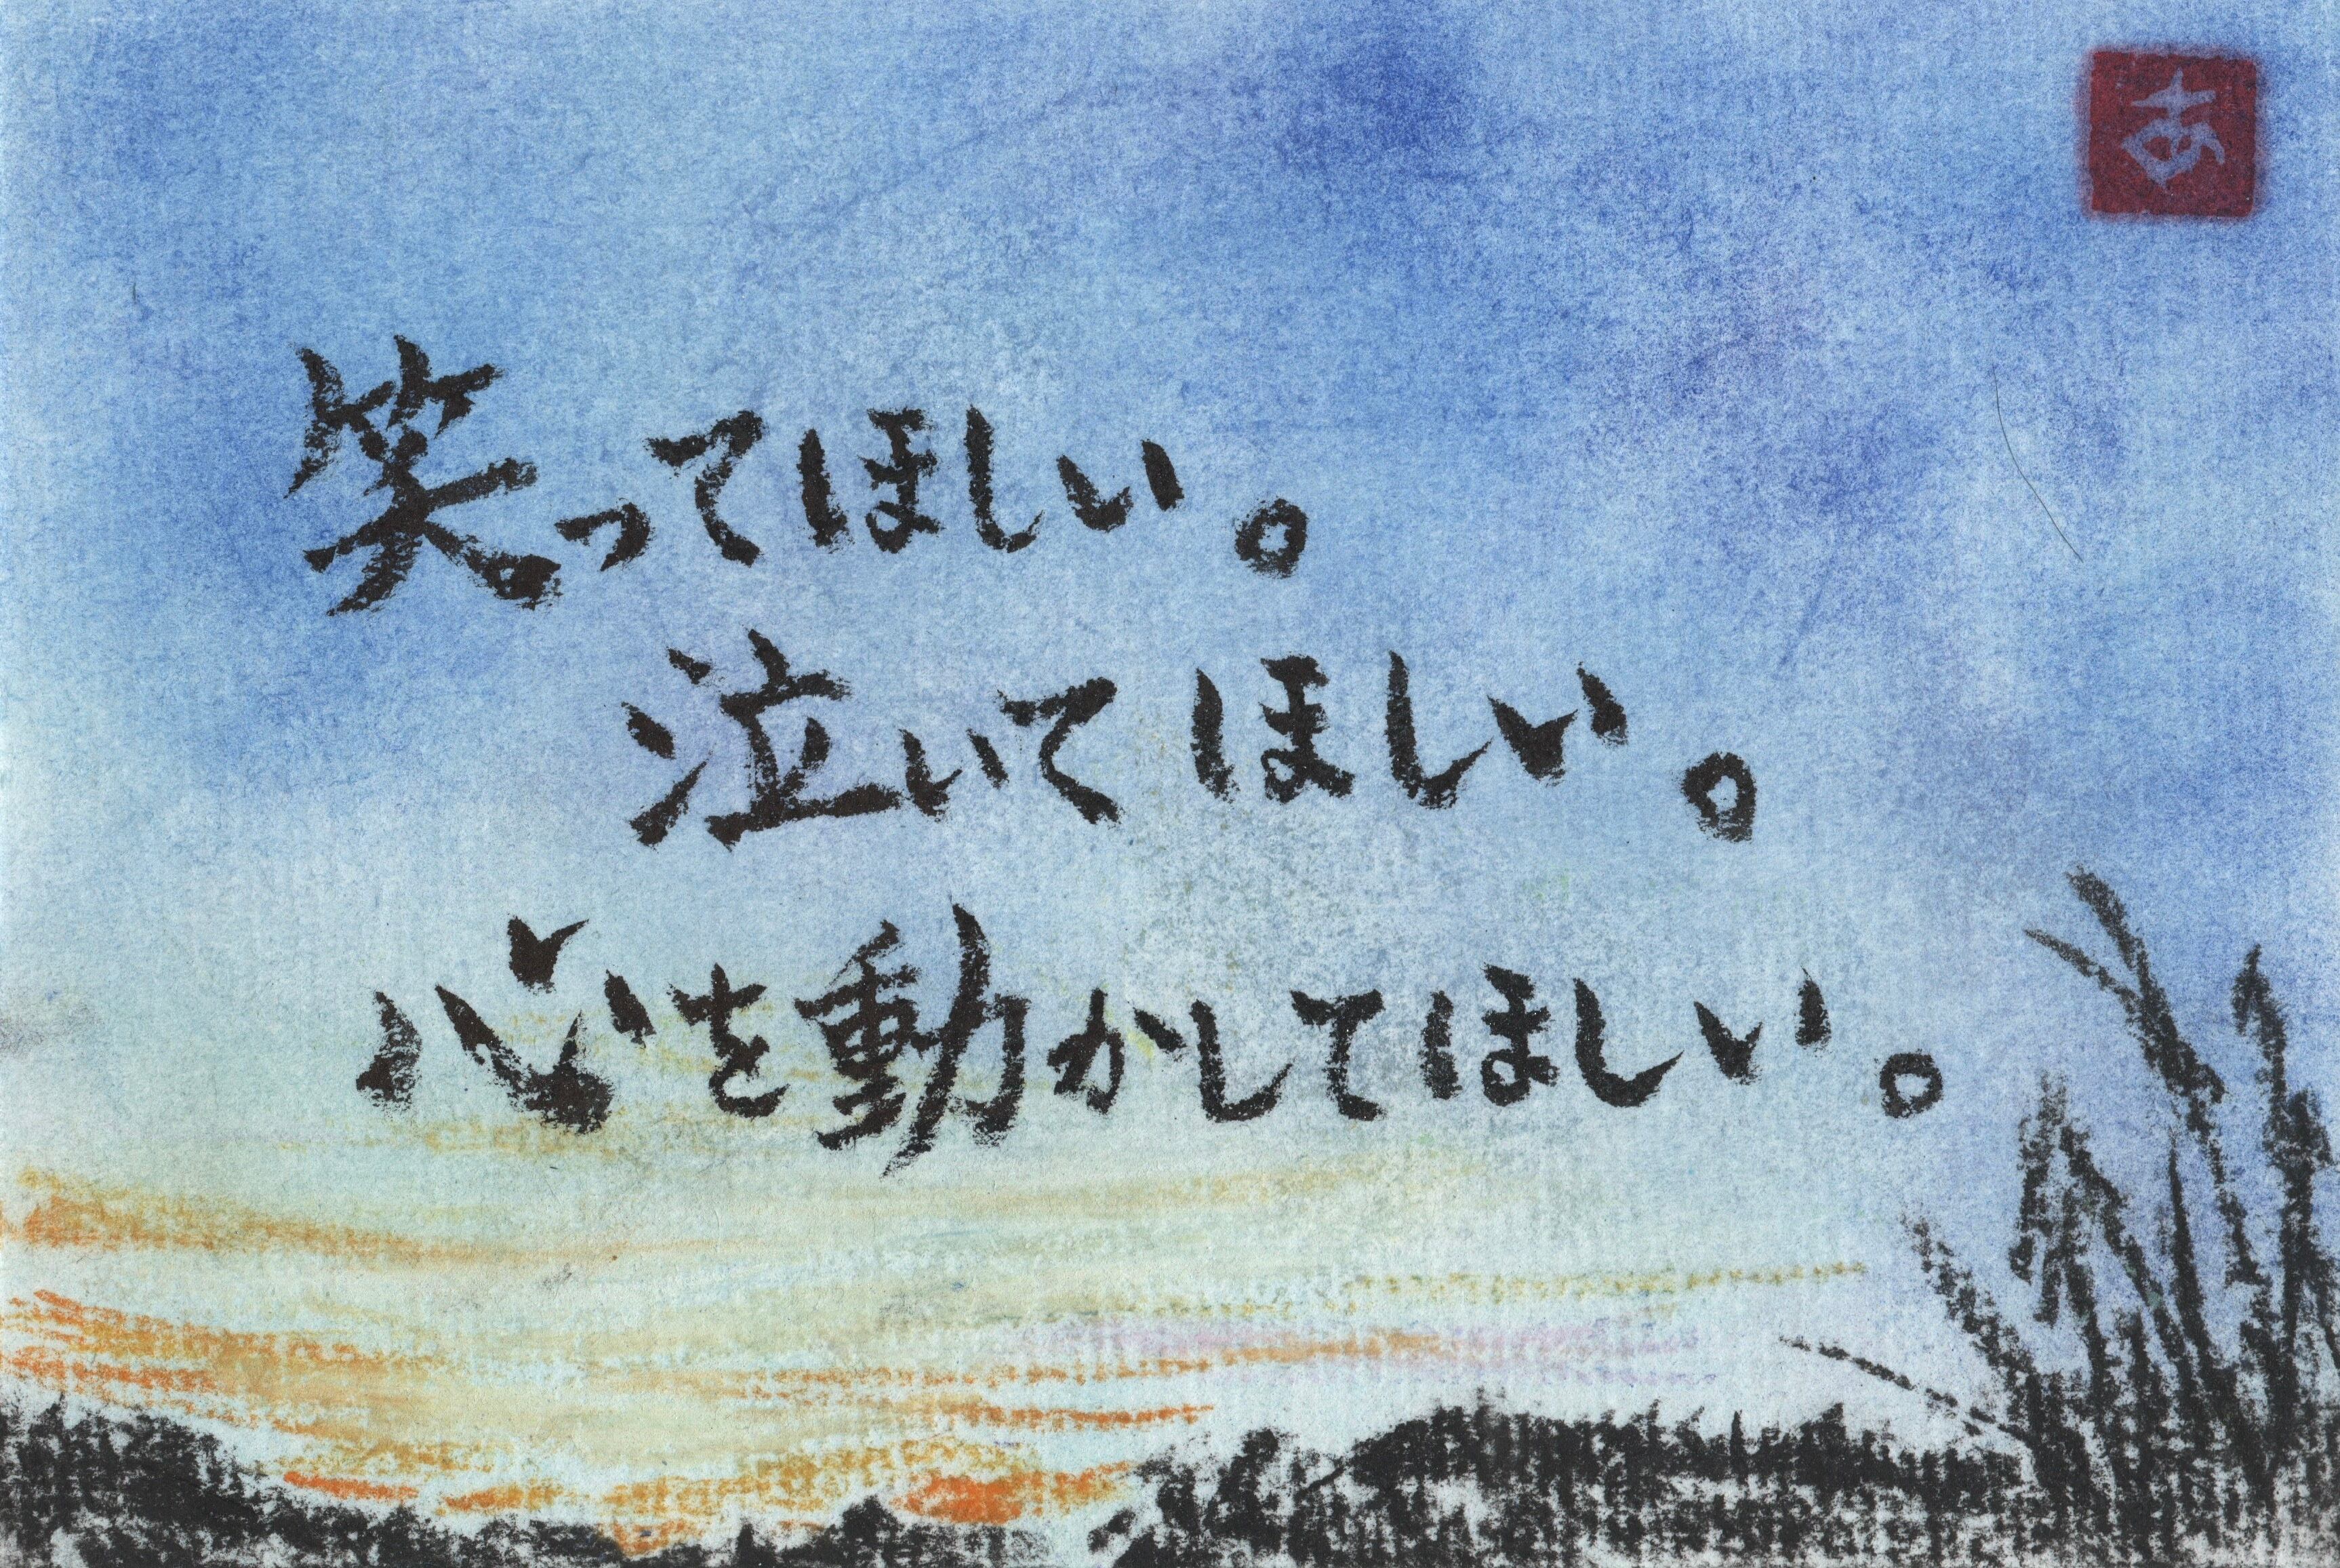 あ
笑ってほしい。
泣いてほしい。
心を動かしてほしい。